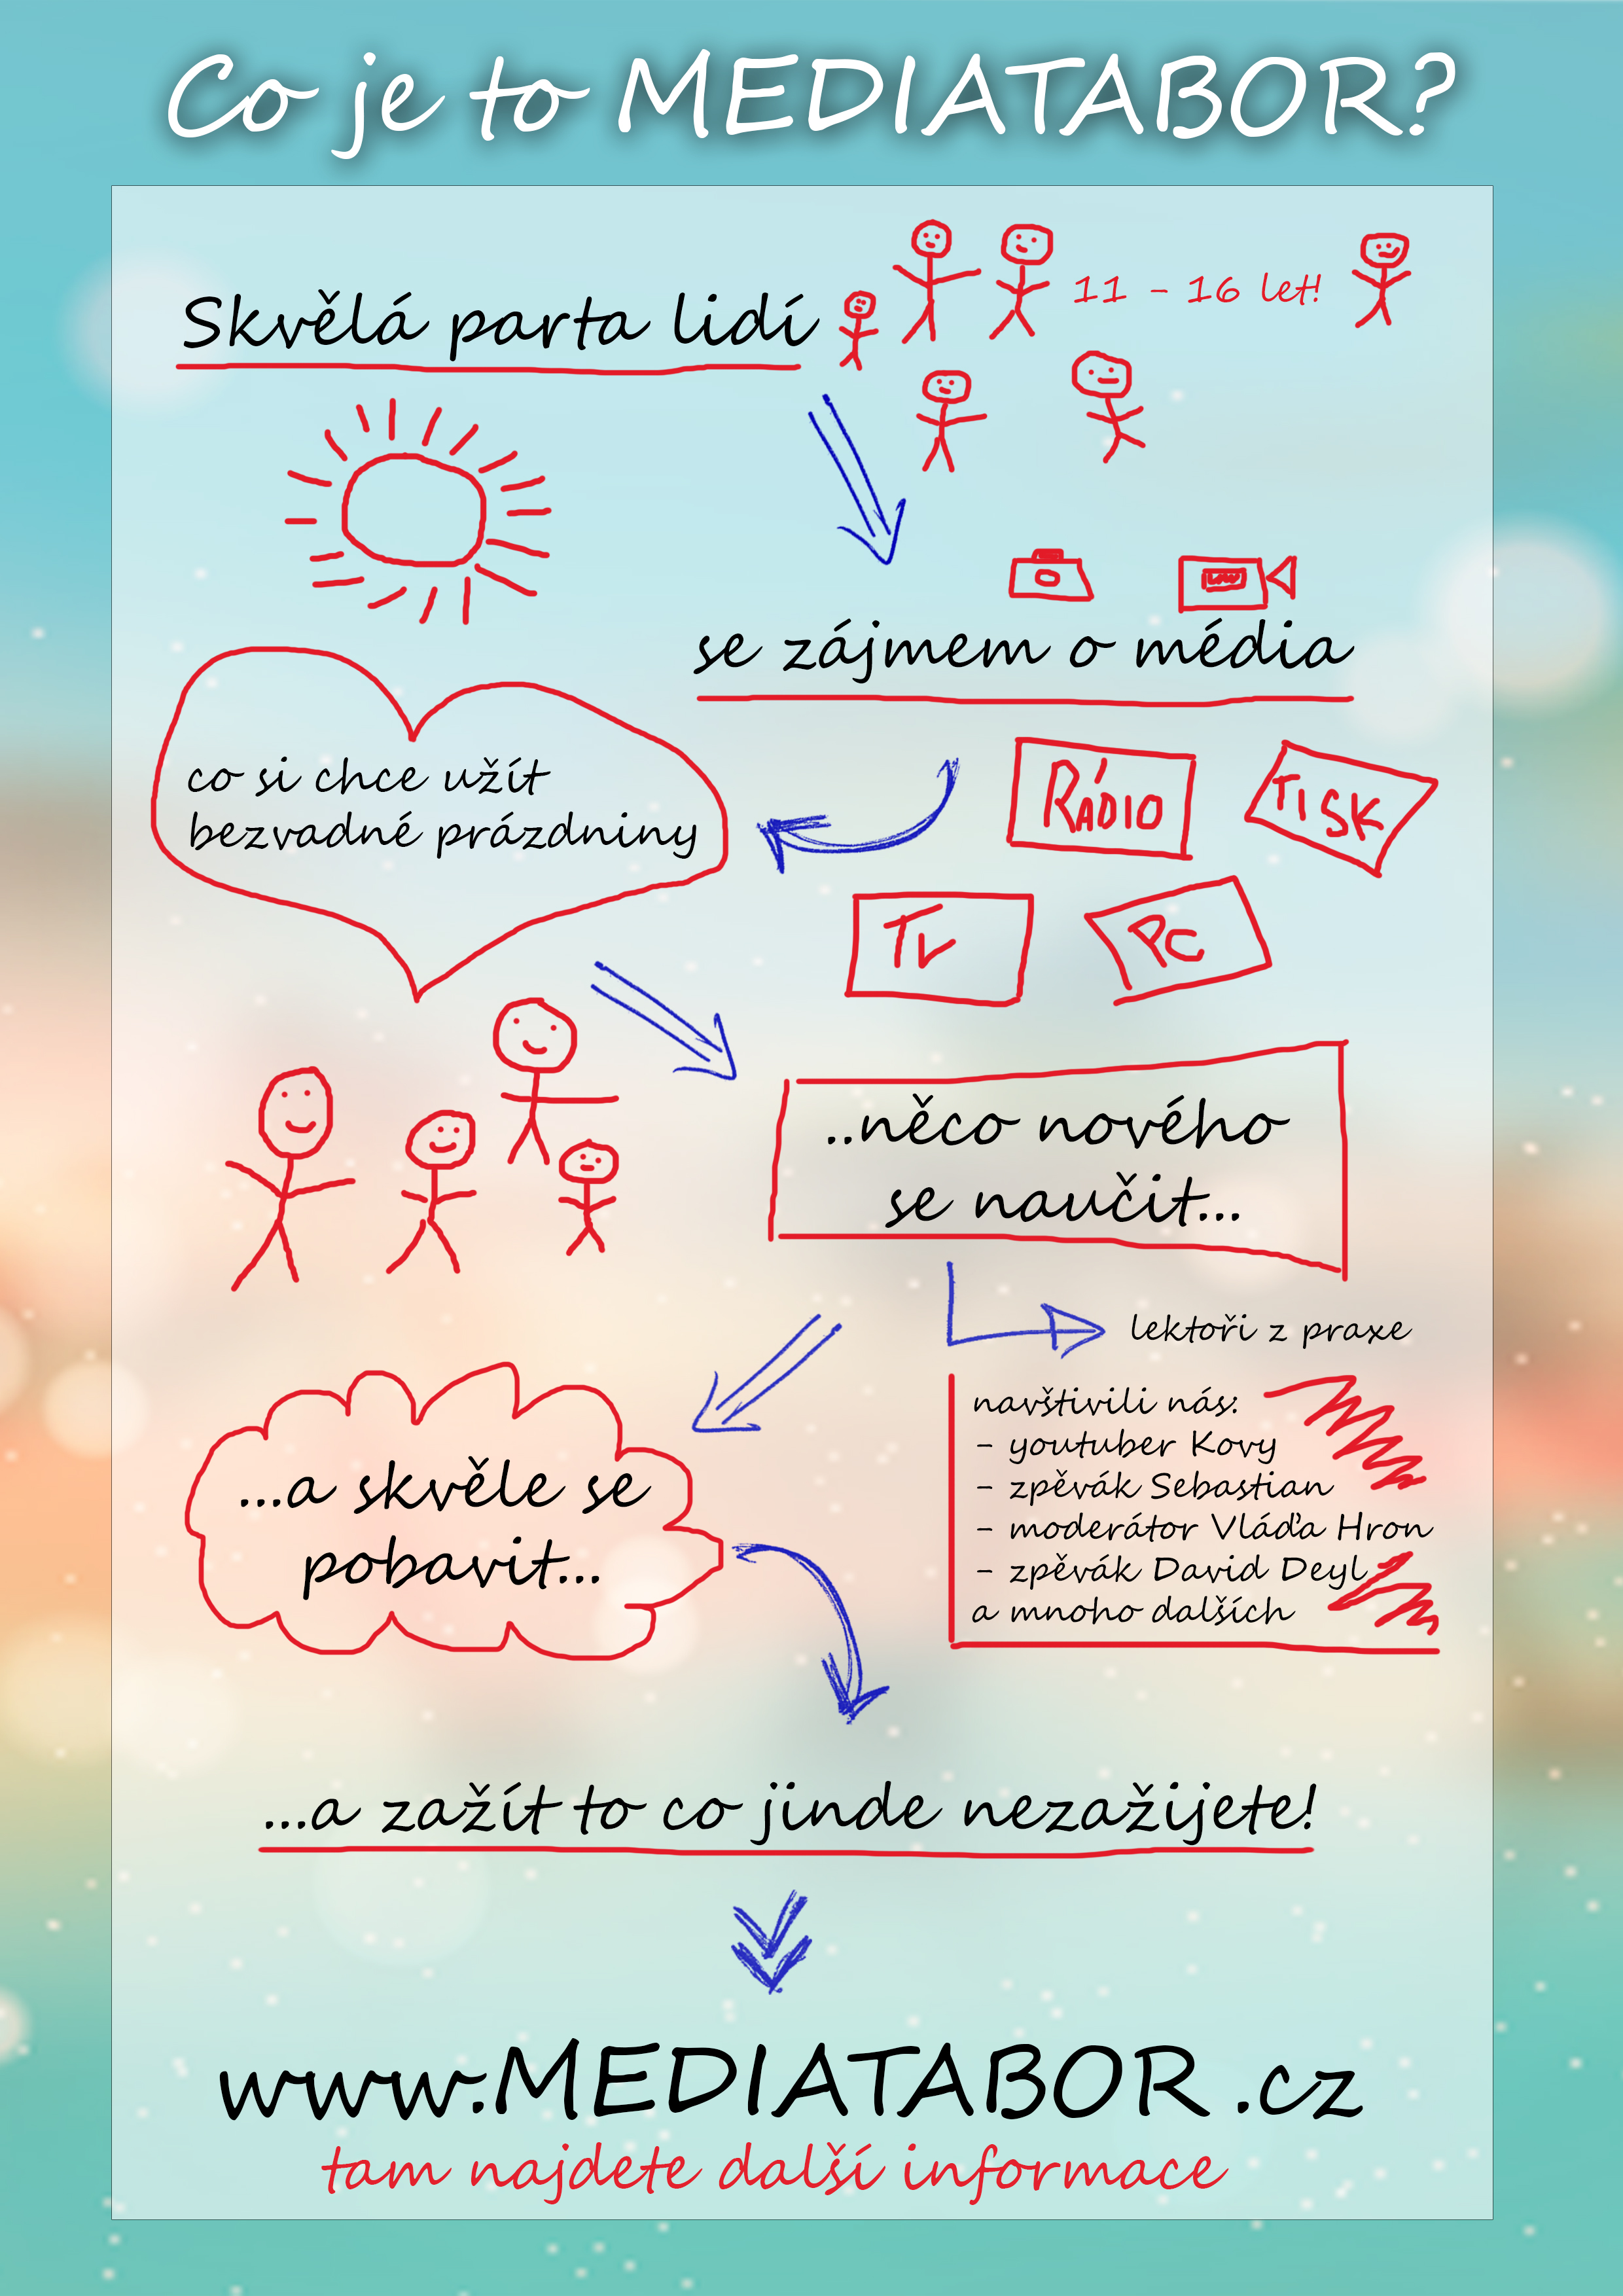 Co je to MEDIATABOR?
Skvělá parta lidí
11 - 16 let!
se zájmem o média
RÁDIO
TISK
TV
PC
co si chce užít
bezvadné prázdniny
..něco nového
se naučit...
lektoři z praxe
navštivili nás:
- youtuber Kovy
- zpěvák Sebastian
- moderátor Vláďa Hron
- zpěvák David Deyl
a mnoho dalších
...a skvěle se
pobavit...
...a zažít to co jinde nezažijete!
www.MEDIATABOR.cz
tam najdete další informace